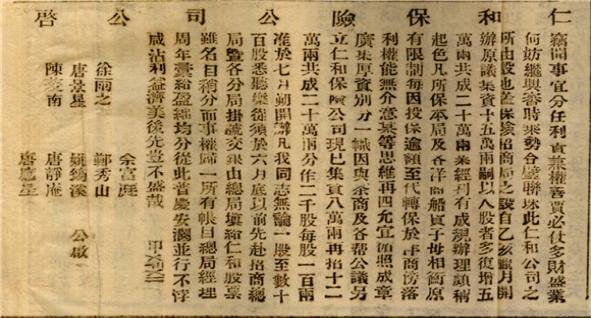 仁和保險公司公啓
竊聞事宜分任利貴兼權善賈必仗多財盛業
何妨繼興審時乘勢合璧聯珠此仁和公司之
所由設也
保險招商局之設自乙亥臘月開
辦原議集資十五萬兩嗣以入股者多復增五
萬兩共成二十萬兩
經刊有成規辦理頗稱
起色凡所保本局及各洋商船貨子母相銜原
有限制每因投保逾額至代轉保於
商傍落
利權能無介意某等思維再四允宜仿照成章
廣集厚資別分一幟因與茶商及各幫公議另
立仁和保險公司現已集資八萬兩再招十二
萬兩共成二十萬兩分作二千股每股一百兩
准於七月朔開辦凡我同志無論一股至數十
百股悉聽樂從須於六月底以前先赴招商總
局暨各分局掛號交銀由總局填給仁和股票
雖名目稱分而事權歸一所有帳目總局經理
周年彙給盈絀均分從此普慶安瀾並行不悖
咸沾利益濟美後先豈不盛哉
徐雨之
唐景星
陳茇南
余富庭
鄭秀山
姚鈞溪
唐靜庵
唐應星
公啟